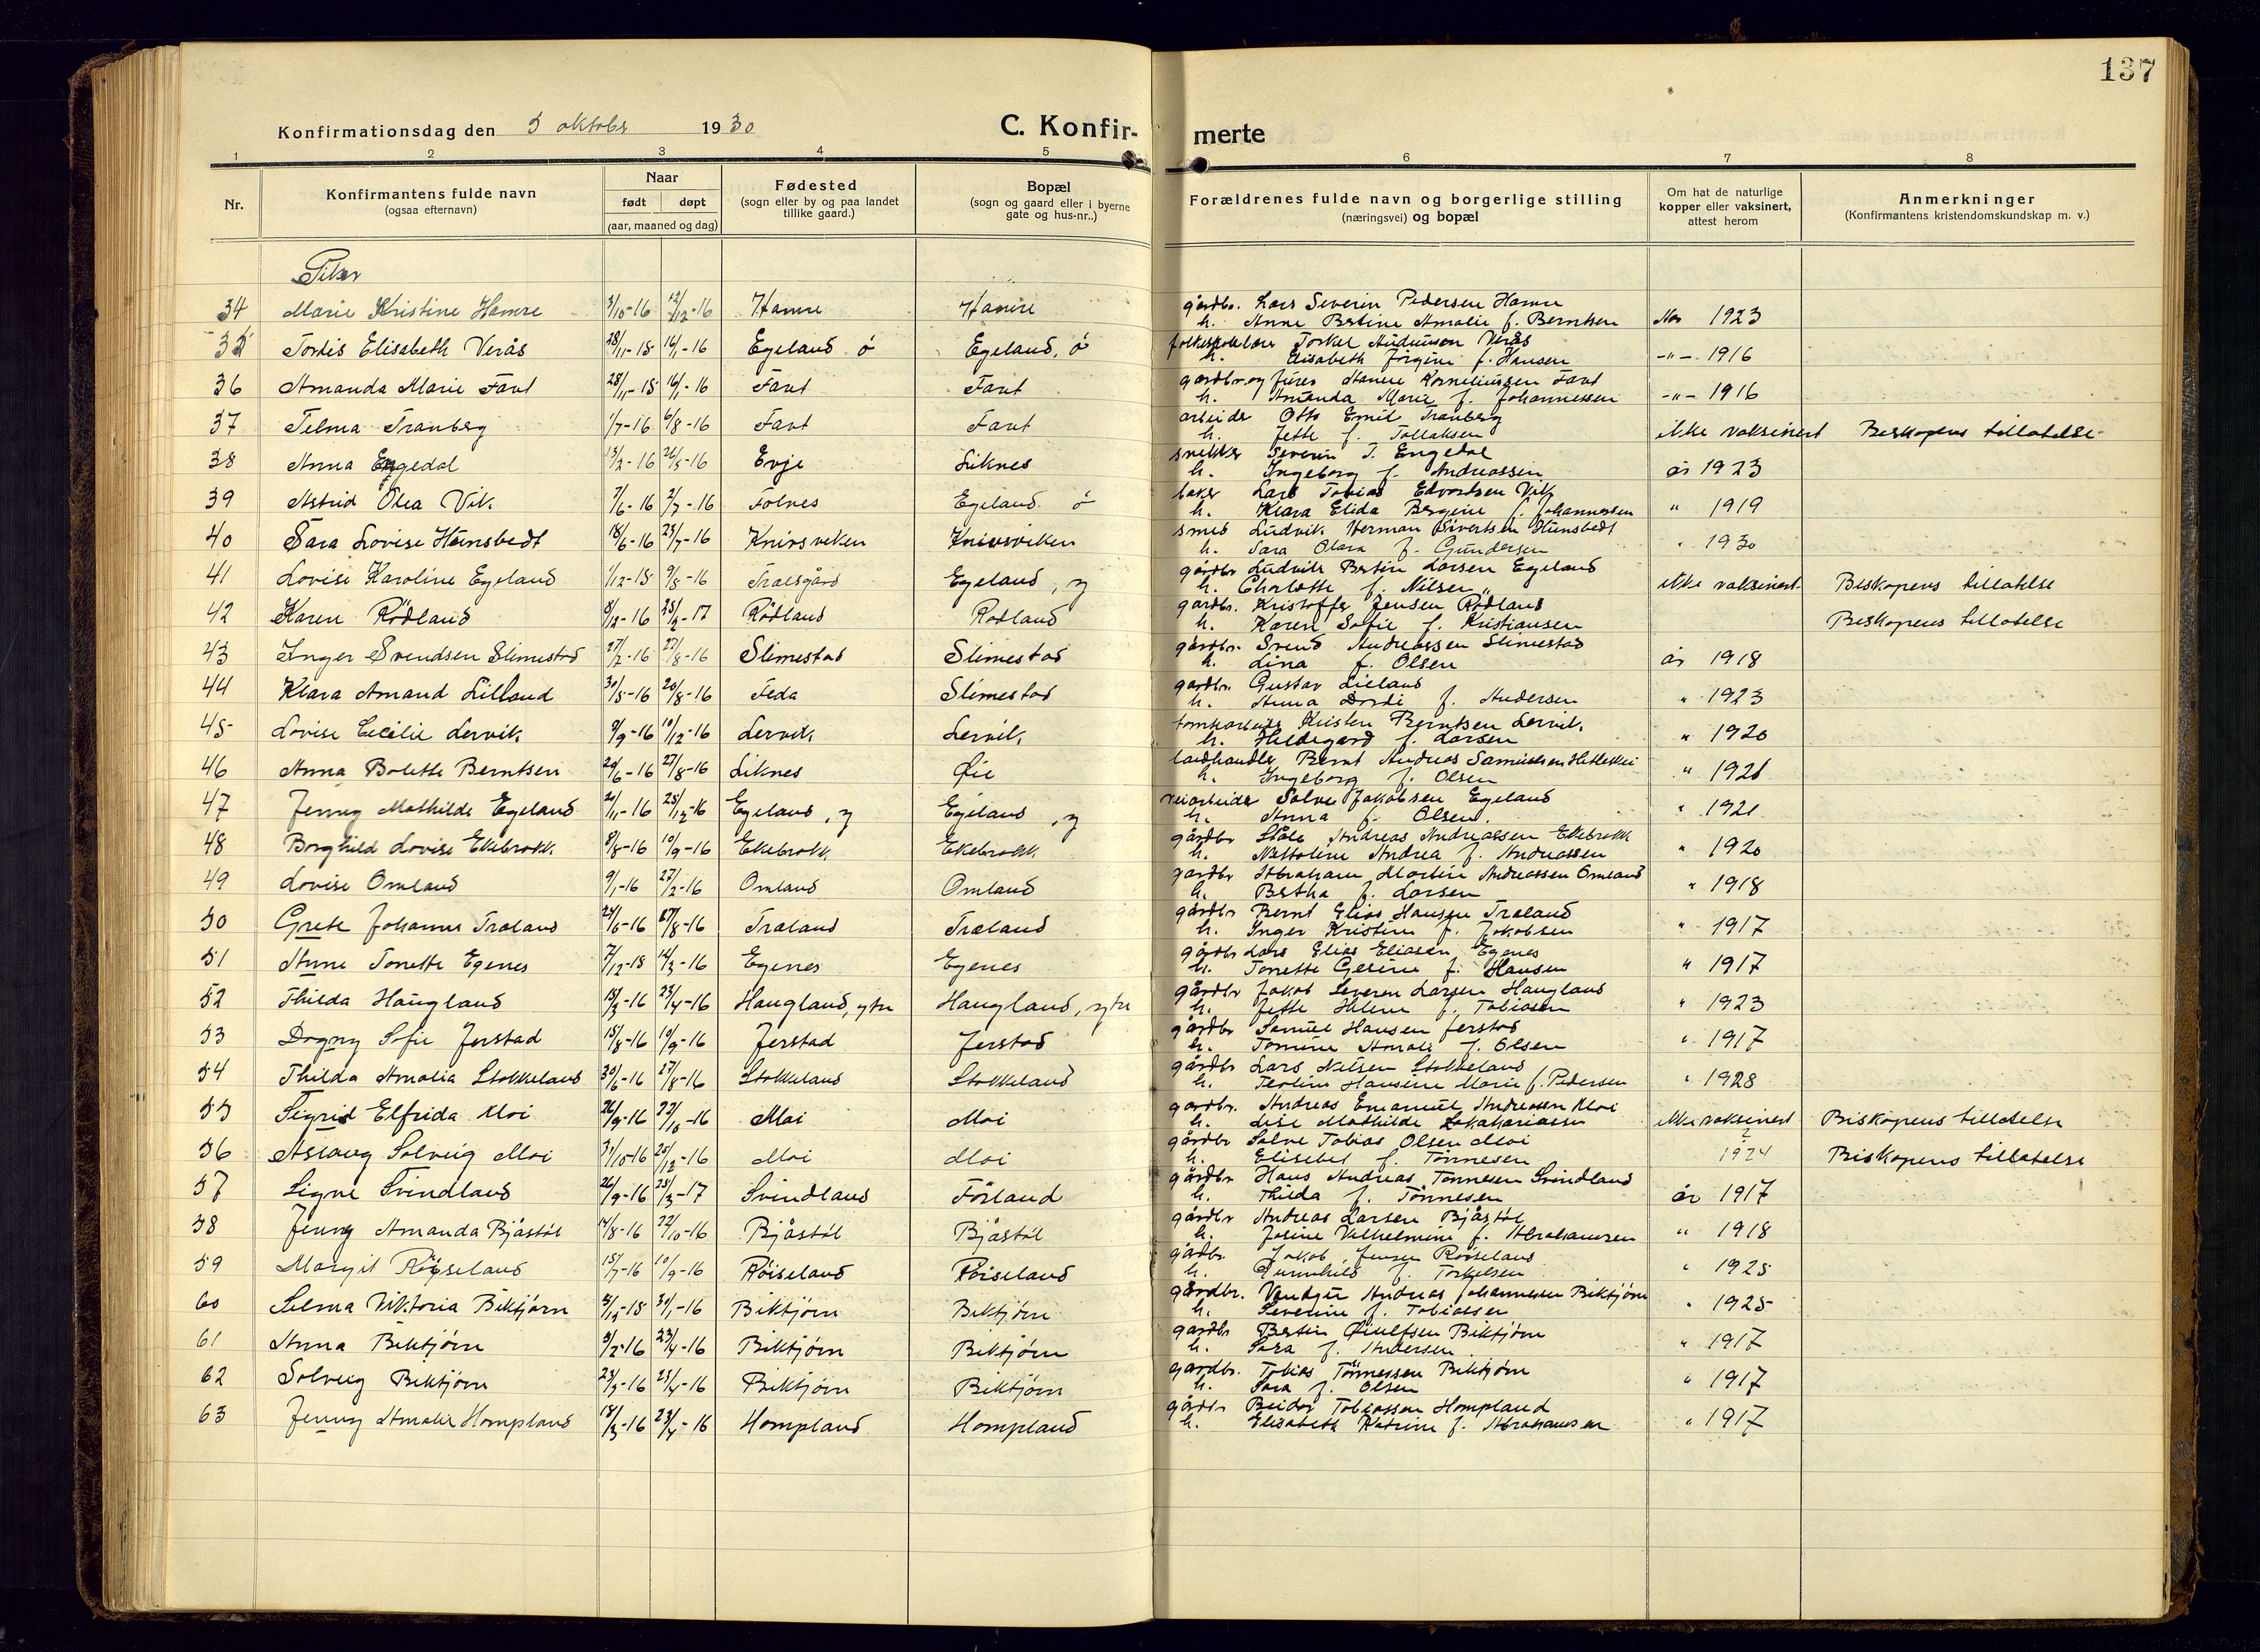 137
Konfirmationsdag den 5 oktober 1930
C. Konfir-merte
1 2 3 4 5 6 7 8
Nr.
Konfirmantens fulde navn
(ogsaa efternavn)
Naar
født døpt
(aar, maaned og dag)
Fødested
(sogn eller by og paa landet
tillike gaard.)
Bopæl
(sogn og gaard eller i byerne
gate og hus-nr.,)
Forældrenes fulde navn og borgerlige stilling
(næringsvei) og bopæl
Om hat de naturlige
kopper eller vaksinert,
attest herom
Anmerkninger
(Konfirmantens kristendomskundskap m. v.)
Piker
34 Marie Kristine Hamre 3/10-16 12/12-16 Hamre Hamre gårdbr. Lars Severin Pedersen Hamre
h. Anne Bertine Amalie f. Berntsen 1923
35 Tordis Elisabeth Verås 28/11-15 16/1-16 Egeland ö Egeland, ö Torkel Verås
h. Elisabeth Jörgine f. Hansen -"- 1916
36 Amanda Marie Favt 28/11-15 16/1-16 Favt Favt gardbr. og Korneliussen Favt
h. Amanda Marie f. Johannessen -"- 1916
37 Telma Tranberg 1/7-16 6/8-16 Favt Favt arbeider Otto Emil Tranberg
h. Jette f. Tollaksen ikke vaksinert Biskopens tillatelse
38 Anna Engedal 13/2-16 26/5-16 Evje Liknes snekker Severin T. Engedal
h. Ingeborg f. Andreassen år 1923
39 Astrid Olea Vik 7/6-16 2/7-16 Folnes Egeland ö baker Lars Tobias Edvardsen Vik
h. Klara Elida Bergine f. Johannessen " 1919
40 Sara Lovise Hunsbedt 18/6-16 23/7-16 Knivsviken Knivsviken smed Ludvik Herman Sivertsen Hunsbedt
h. Sara Olava f. Gundersen " 1930
41 Lovise Karoline Egeland 1/12-15 9/8-16 Træsgård Egeland, y gårdbr Ludvik Bertin Larsen Egeland
h. Charlotte f. Nilsen ikke vaksinert Biskopens tillatelse
42 Karen Rödland 8/12-16 25/2-17 Rödland Rödland gårdbr. Kristoffer Jensen Rödland
h. Karen Sofie f. Kristiansen Biskopens tillatelse
43 Inger Svendsen Slimestad 27/2-16 27/8-16 Slimestad Slimestad gårdbr. Svend Andreassen Slimestad
h. Lina f. Olsen år 1918
44 Klara Amand Lilland 30/5-16 20/8-16 Feda Slimestad gardbr. Gustav Lieland
h. Anna Dordi f. Andersen " 1923
45 Lovise Cecilie Lervik 9/9-16 10/12-16 Lervik Lervik Kristen Berntsen Lervik
h. Hildegard f. Larsen " 1920
46 Anna Bolette Berntsen 20/6-16 27/8-16 Liknes Öie landhandler Bernt Andreas Samuelsen
h. Ingeborg f. Olsen " 1921
47 Jenny Mathilde Egeland 20/11-16 25/12-16 Egeland, y Egeland, y veiarbeider Salve Jakobsen Egeland
h. Anna f. Olsen. " 1921
48 Borghild Lovise Ekebrokk 8/8-16 10/9-16 Ekebrokk Ekebrokk gårdbr Ståle Andreas Andreassen Ekebrokk
h. Nettoline Andrea f. Andreassen " 1920
49 Lovise Omland 9/1-16 27/2-16 Omland Omland gårdbr Abraham Martin Andreassen Omland
h. Bertha f. Larsen " 1918
50 Grete Johanne Træland 24/6-16 27/8-16 Træland Træland gårdbr Bernt Elias Hansen Træland
h. Inger Kristine f. Jakobsen " 1917
51 Anne Tonette Egenes 7/12-15 14/3-16 Egenes Egenes gårdbr Lars Elias Eliasen Egenes
h. Tonette Gesine f. Hansen " 1917
52 Thilda Haugland 15/3-16 25/4-16 Haugland, ytre Haugland, ytre gårdbr Jakob Severin Larsen Haugland
h. Jette Helene f. Tobiasen " 1923
53 Dagny Sofie Jerstad 15/8-16 10/9-16 Jerstad Jerstad gårdbr Samuel Hansen Jerstad
h. Tomine Amalie f. Olsen " 1917
54 Thilda Amalia Stokkeland 30/6-16 27/8-16 Stokkeland Stokkeland gårdbr Lars Nilsen Stokkeland
h. Teoline Hansine Marie f. Pedersen " 1928
55 Sigrid Elfrida Moi 26/9-16 22/10-16 Moi Moi gardbr. Andreas Emanuel Andreassen Moi
h. Lise Mathilde Sakariassen ikke vaksinert Biskopens tillatelse
56 Aslaug Solveig Moi 31/10-16 25/12-16 Moi Moi gårdbr Salve Tobias Olsen Moi
h. Elisebet f. Tönnesen 1924 Biskopens tillatelse
57 Signe Svindland 26/9-16 25/3-17 Svindland Förland gårdbr Hans Andreas Tönnesen Svindland
h. Thilda f. Tönnesen år 1917
58 Jenny Amanda Bjåstöl 14/8-16 22/10-16 Bjåstöl Bjåstöl gårdbr Andreas Larsen Bjåstöl
h. Josine Vilhelmine f. Abrahamsen " 1918
59 Margit Röiseland 15/7-16 10/9-16 Röiseland Röiseland gårdbr. Jakob Jensen Röiseland
h. Gunnhild f. Torkelsen " 1925
60 Selma Viktoria Biktjörn 4/12-15 30/1-16 Biktjörn Biktjörn gårdbr. Andreas Johannessen Biktjörn
h. Severine f. Tobiassen " 1925
61 Anna Biktjörn 3/2-16 23/4-16 Biktjörn Biktjörn gardbr Bertin Öiulfsen Biktjörn
h. Sara f. Andersen " 1917
62 Solveig Biktjörn 23/2-16 23/4-16 Biktjörn Biktjörn gardbr. Tobias Tönnessen Biktjörn
h. Sara f. Olsen " 1917
63 Jenny Amalie Hompland 18/3-16 23/4-16 Hompland Hompland gårdbr Reidar Tobiassen Hompland
h. Elisabeth Katrine f. Abrahamsen " 1917